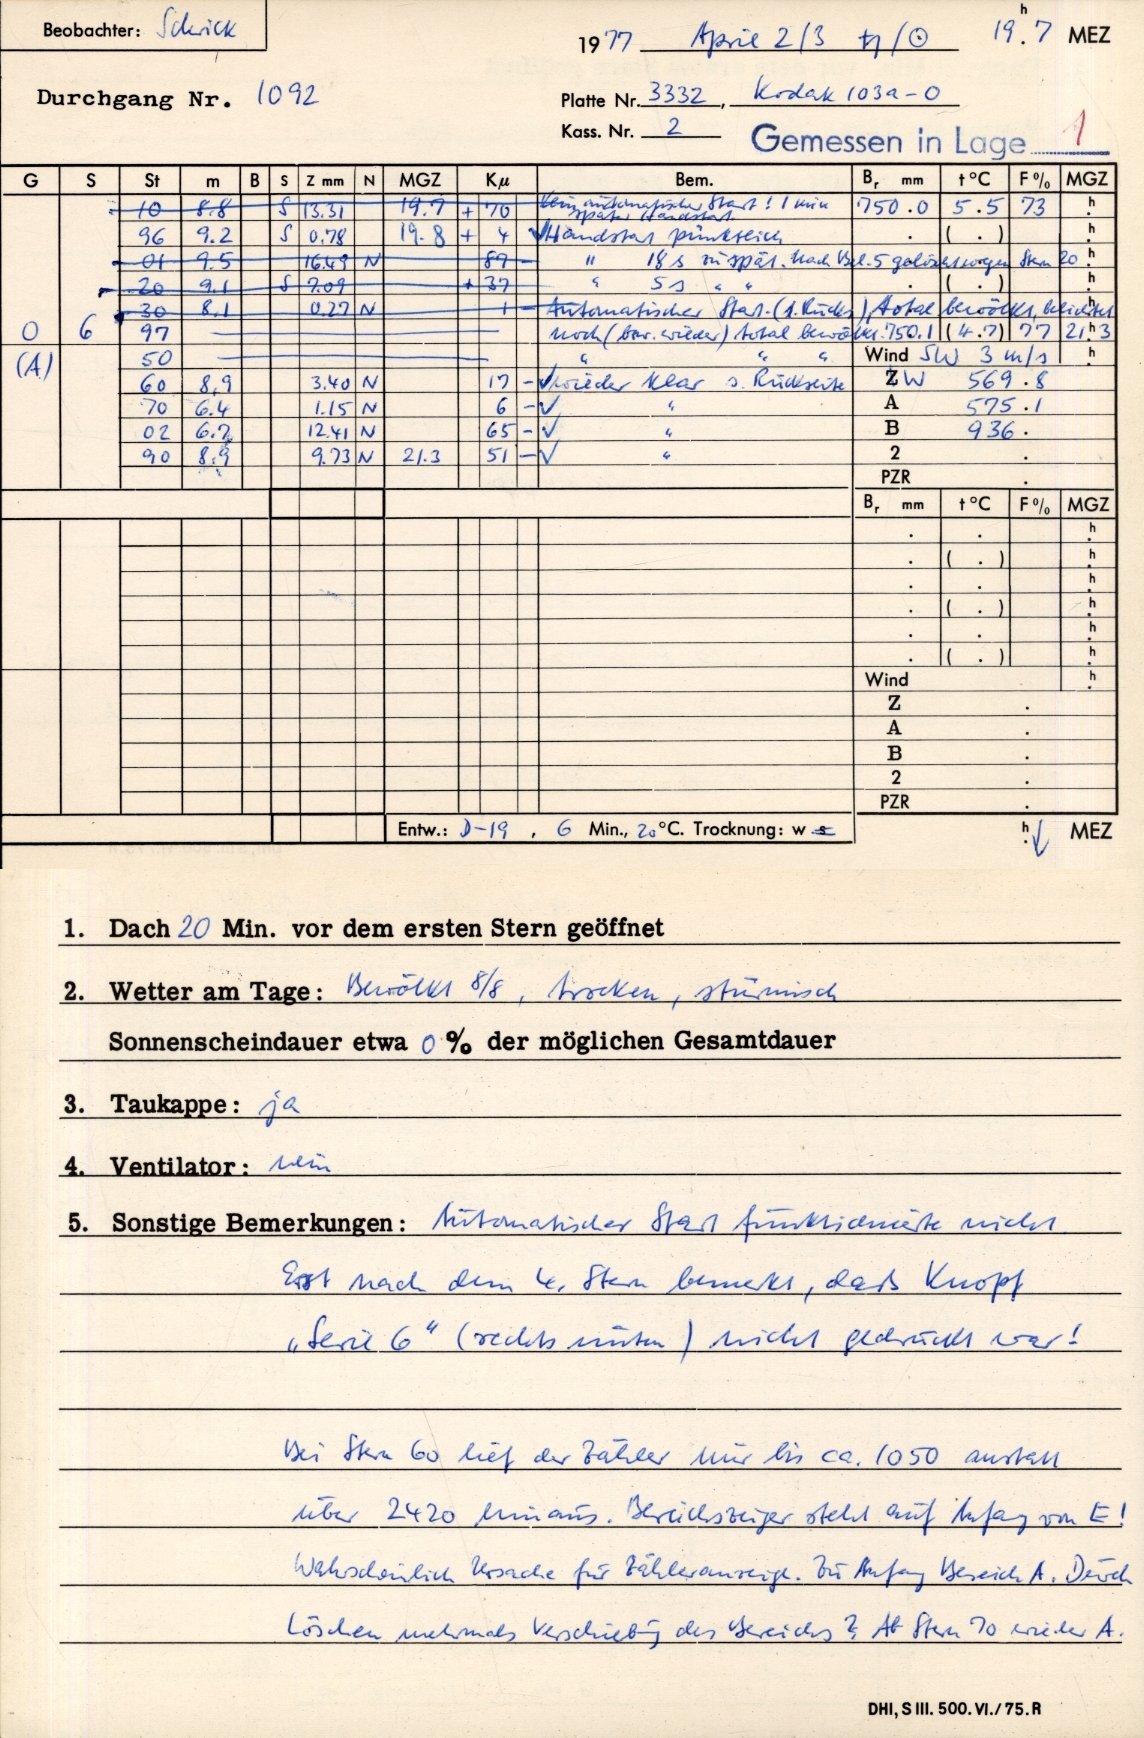 Beobachter: Schrick
1977 April 2/3 ♄/☉ 19.h7 MEZ
Durchgang Nr. 1092
Platte Nr. 3332, Kodak 103a-O
Kass. Nr. 2
Gemessen in Lage 1
G S St m B S Z mm N MGZ Kμ Bem. Br mm t°C F% MGZ
10 8.8 S 13.31 19.7 + 70 kein automatischer Start! 1 min 750.0 5.5 73 h
später Handstart
96 9.2 S 0.78 19.8 + 4 ✓ Handstart pünktlich . ( . ) h
01 9.5 16.49 N 89 - " 18 s zu spät. Nach Bel. 5 gelöscht wegen Stern 20 . h
20 9.1 S 7.09 + 37 " 5 s " " . ( . ) h
30 8.1 0.27 N 1 - Automatischer Start (s. Rücks.), total bewölkt, belichtet h
O 6 97 noch (bzw. wieder) total bewölkt. 750.1 (4.7) 77 21.h3
(A) 50 " " " Wind SW 3 m/s h
60 8.9 3.40 N 17 - ✓ wieder klar s. Rückseite Z W 569.8
70 6.4 1.15 N 6 - ✓ " A 575.1
02 6.7 12.41 N 65 - ✓ " B 936.
90 8.9 9.73 N 21.3 51 - ✓ " 2 .
PZR .
Br mm t°C F% MGZ
. . h
. ( . ) h
. . h
. ( . ) h
. . h
. ( . ) h
Wind h
Z .
A .
B .
2 .
PZR .
Entw.: D-19, 6 Min., 20°C. Trocknung: w s h. ↓ MEZ
1. Dach 20 Min. vor dem ersten Stern geöffnet
2. Wetter am Tage: Bewölkt 8/8, trocken, stürmisch
Sonnenscheindauer etwa 0 % der möglichen Gesamtdauer
3. Taukappe: ja
4. Ventilator: nein
5. Sonstige Bemerkungen: Automatischer Start funktionierte nicht
Erst nach dem 4. Stern bemerkt, daß Knopf
„Serie 6" (rechts unten) nicht gedrückt war!
Bei Stern 60 lief der Zähler nur bis ca. 1050 anstatt
über 2420 hinaus. Bereichszeiger steht auf Anfang von E!
Wahrscheinlich Ursache für Zähleranzeige. Zu Anfang Bereich A. Durch
Löschen mehrmals Verschiebung des Bereichs? Ab Stern 70 wieder A.
DHI, S III. 500. VI./75. R